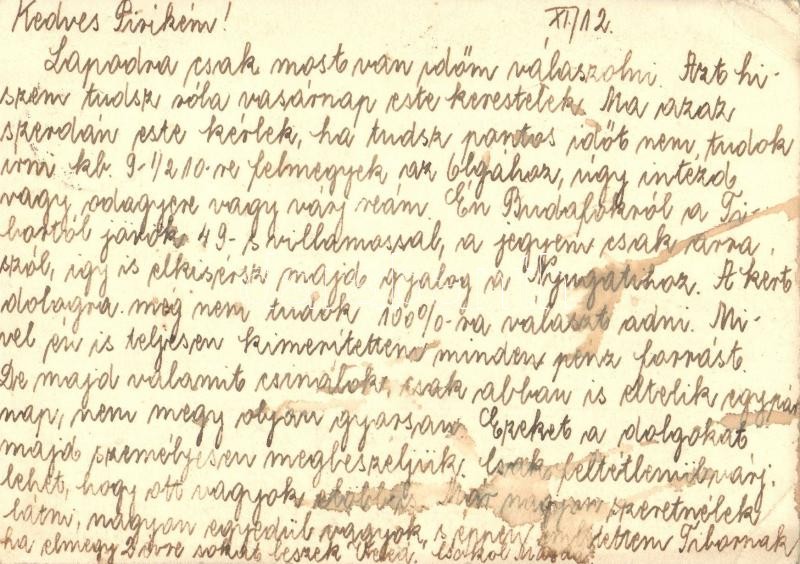 Kedves Pirikém! XI/12.
Lapodra csak most van időm válaszolni. Azt hi-
szem tudsz róla vasárnap este kerestelek. Ma azaz
szerdán este kérlek, ha tudsz pontos időt nem tudok
irni kb. 9-1/2 10-re felmegyek az Olgához, úgy intézd
vagy odagyere vagy várj reám. Én Budafokról a Ti-
bortól járok 49-s villamossal, a jegyem csak arra
szól, igy is elkisérsz majd gyalog a Nyugatihoz. A kért
dologra még nem tudok 100%-ra választ adni. Mi-
vel én is teljesen kimeritettem minden pénz forrást.
De majd valamit csinálok, csak abban is eltelik egypár
nap, nem megy olyan gyorsan. Ezeket a dolgokat
majd személyesen megbeszéljük. Csak feltétlenül várj.
lehet, hogy ott vagyok előbb is. Már nagyon szeretnélek
látni, nagyon egyedül vagyok, s éppen emlitettem Tibornak
ha elmegy 2 évre sokat leszek Veled. Csókol